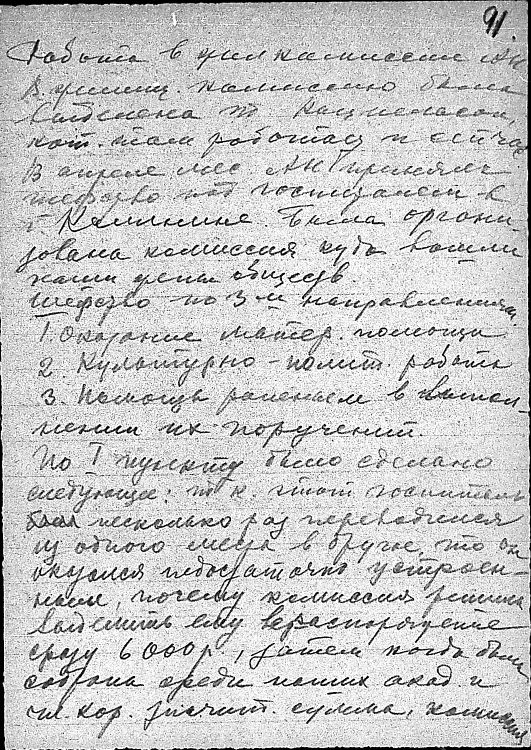 91.
Работа в комиссии АН
В комиссию была
выделена т.
кот. там работает и сейчас
В апреле мес. АН приняла
шефство над госпиталем в
г. Калинине. Была органи-
зована комиссия куда вошли
наши обществ.
Шефство по 3-м направлениям
1. Оказание матер. помощи
2. Культурно-полит. работа
3. Помощь раненым в выпол-
нении их поручений.
По I пункту было сделано
следующее: т.к. этот госпиталь
был несколько раз переводился
из одного места в другое, то он
оказался недостаточно устроен-
ным, почему комиссия решила
выделить ему в распоряжение
сразу 6000 р., затем когда была
собрана среди наших акад. и
чл. кор. значит. сумма, комиссия